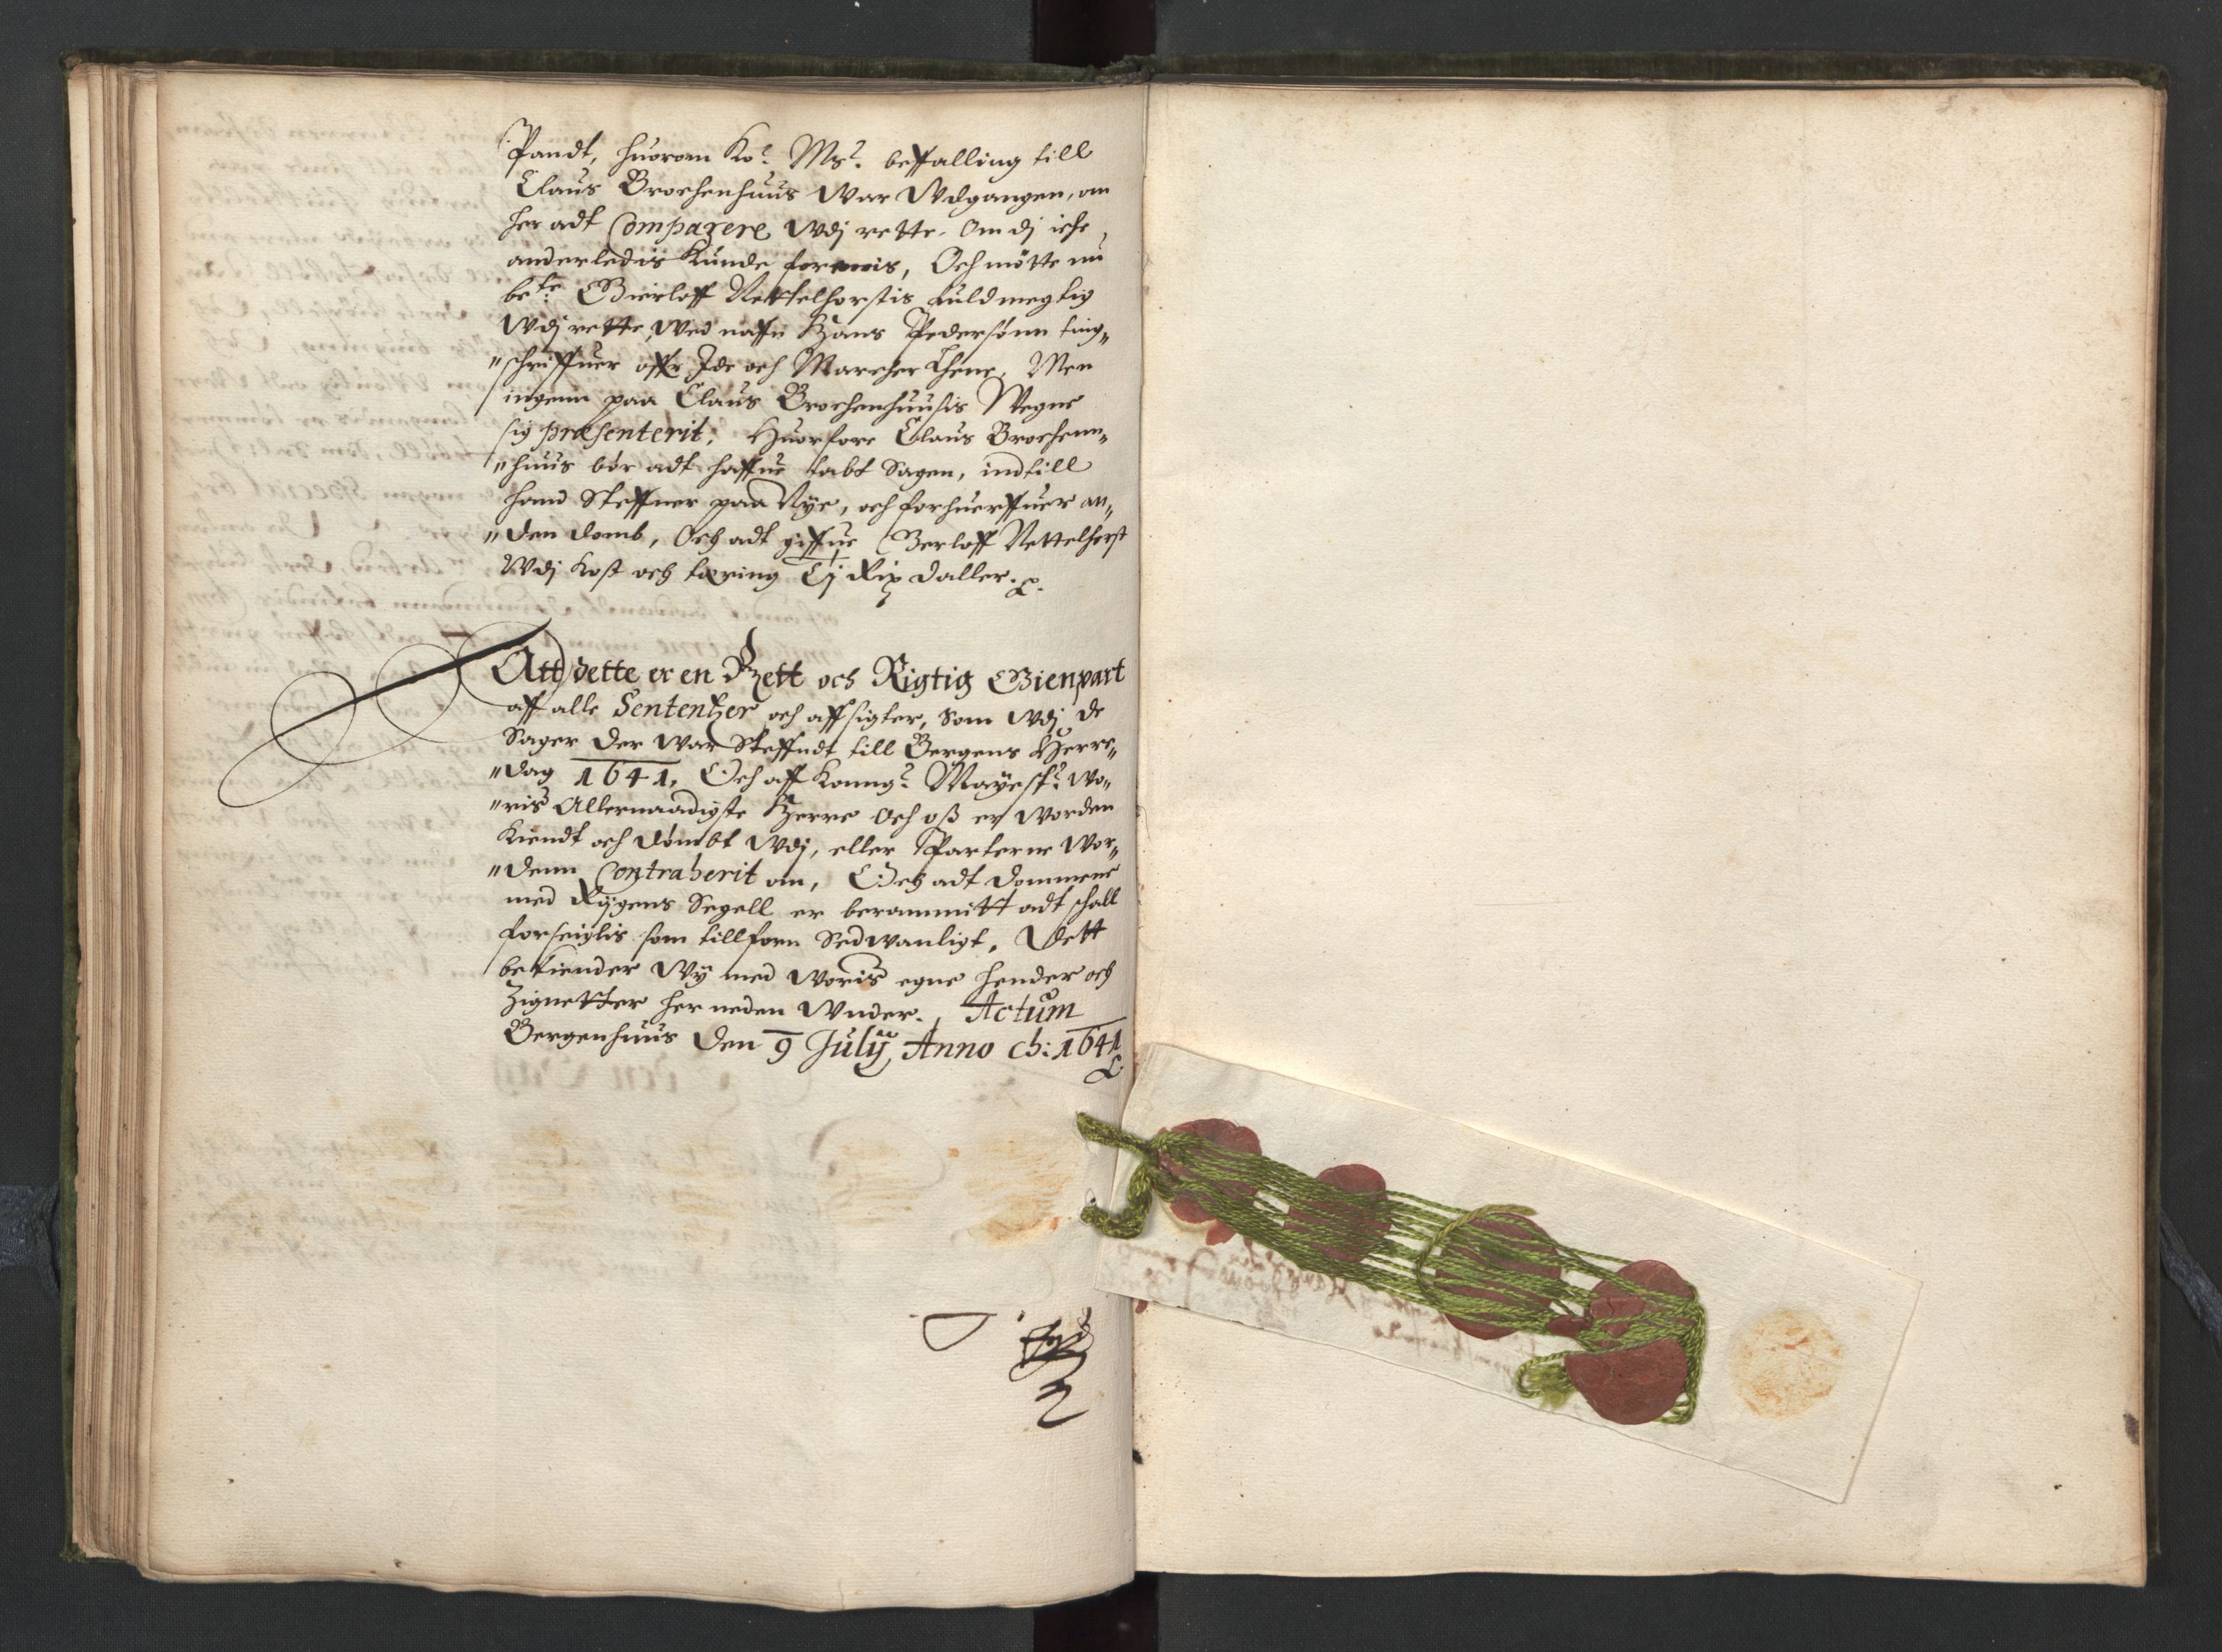 Pandt, huorom Ko: Ms: beffalling till
Claus Brochenhuus War Wdgangen, om
her adt Comparere Wdj rette. Om dj iche
anderledis Kunde foreenis, Och mötte nu
be:te Gierloff Nettelhorstis fuldmegtig
Wdj rette, Wed naffn Hans Pedersönn ting„
„schriffuer offr Ide och Marcher Lhene, Men
ingenn paa Claus Brochenhuusis Wegne
sig præsenterit, Huorfore Claus Brochenn„
„huus bör adt haffue tabt Sagen, indtill
hand Steffner paa Nye, och forhuerffuer an„
„den domb, Och adt giffue Gerloff Nettelhorst
Wdj Kost och tæring Cj Rix daller.
Att dette er en Rett och Rigtig Gienpart
aff alle Sententzer och affsigter, Som Wdj de
Sager der War Steffndt till Bergens Herre„
„dag 1641, Och aff Konng: Mayest: Wo„
„ris Allernaadigste Herre Och oß er Worden
Kiendt och dömbt Wdj, eller Parterne Wor„
„denn Contraherit om, Och adt dommene
med Rygens Segell er berammitt adt schall
forseiglis som tillforn Sedwanligt, Dett
bekiender Wy med Woris egne hender och
Zignetter her neden Wnder. Actum
Bergenhuus Den 9 Julij Anno ch: 1641